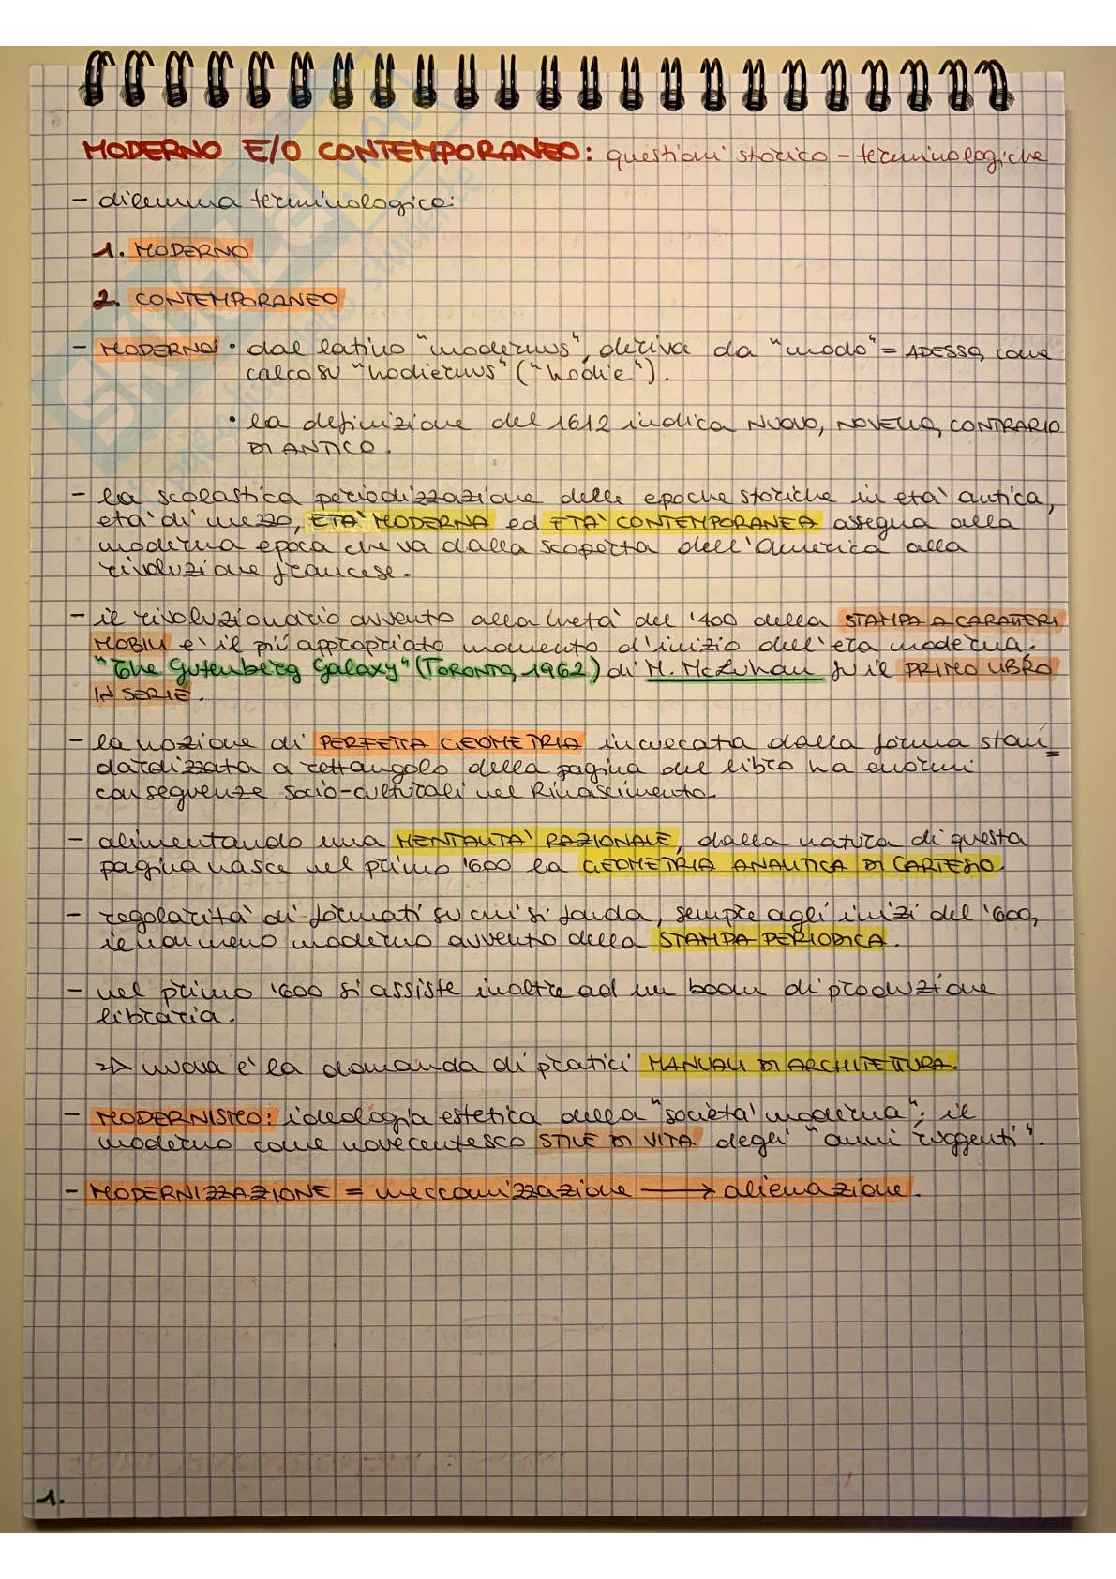 MODERNO E/O CONTEMPORANEO: questioni storico-terminologiche
- dilemma terminologico:
1. MODERNO
2. CONTEMPORANEO
- MODERNO: • dal latino "modernus", deriva da "modo" = ADESSO, come
calco su "hodiernus" ("hodie").
• la definizione del 1612 indica NUOVO, NOVELLO, CONTRARIO
DI ANTICO.
- la scolastica periodizzazione delle epoche storiche in età antica,
età di mezzo, ETÀ MODERNA ed ETÀ CONTEMPORANEA assegna alla
moderna epoca che va dalla scoperta dell'America alla
rivoluzione francese.
- il rivoluzionario avvento alla metà del '400 della STAMPA A CARATTERI
MOBILI è il più appropriato momento d'inizio dell'età moderna.
"The Gutenberg Galaxy" (TORONTO, 1962) di M. McLuhan fu il PRIMO LIBRO
IN SERIE.
- la nozione di PERFETTA GEOMETRIA incarnata dalla forma stan=
dardizzata a rettangolo della pagina del libro ha enormi
conseguenze socio-culturali nel Rinascimento.
- alimentando una MENTALITÀ RAZIONALE, dalla natura di questa
pagina nasce nel primo '600 la GEOMETRIA ANALITICA DI CARTESIO.
- regolarità di formati su cui si fonda, sempre agli inizi del '600,
il non meno moderno avvento della STAMPA PERIODICA.
- nel primo '600 si assiste inoltre ad un boom di produzione
libraria.
=> nuova è la domanda di pratici MANUALI DI ARCHITETTURA.
- MODERNISMO: ideologia estetica della "società moderna"; il
moderno come novecentesco STILE DI VITA degli "anni ruggenti".
- MODERNIZZAZIONE = meccanizzazione → alienazione.
1.